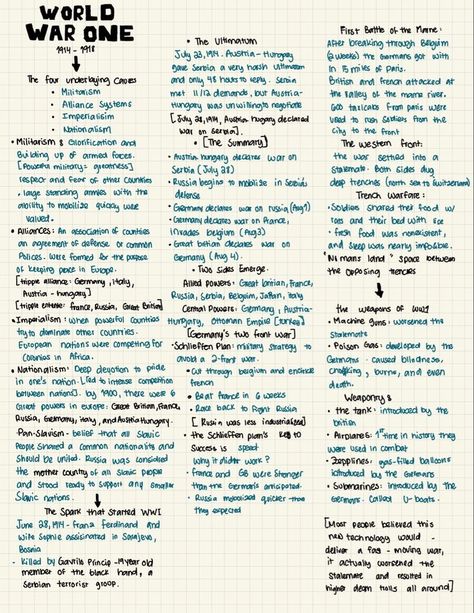 WORLD
WAR ONE
1914 - 1918
The four underlying causes
• Militarism
• Alliance Systems
• Imperialism
• Nationalism
• Militarism: Glorification and
Building up of armed forces.
[Powerful military = greatness]
respect and fear of other countries
. large standing armies with the
ability to mobilize quickly were
Valued.
• Alliances: An association of countries
an agreement of defense or common
Polices. Were formed for the purpose
of keeping peace in Europe.
[tripple alliance: Germany, Italy,
Austria-hungary]
[tripple entente: France, Russia, Great Britian]
• Imperialism: When powerful countries
try to dominate other countries.
European nations were competing for
Colonies in Africa.
• Nationalism: Deep devotion to pride
in one's nation. [Led to intense competition
between nations]. by 1900, there were 6
Great powers in europe: Great Britian, France,
Russia, Germany, Italy, and Austria Hungary.
• Pan-Slavism - belief that all Slavic
People shared a common nationality and
Should be united. Russia was considered
the mother country of all Slavic people
and stood ready to support any smaller
Slavic nations.
The Spark that started WWI
June 28, 1914 - Franz Ferdinand and
wife Sophie assinated in Sarajevo,
Bosnia
- killed by Gavrilo Princip - 19 year old
member of the black hand, a
Serbian terrorist group.
• The Ultimatum
July 23, 1914. Austria-Hungary
gave Serbia a very harsh ultimatum
and only 48 hours to reply. Serbia
met 11/12 demands, but Austria-
Hungary was unwilling to negotiate
[July 28, 1914, Austria Hugary declared
war on Serbia].
[The Summary]
• Austria hungary declares war on
Serbia (July 28)
• Russia begins to mobilize in Serbia's
defense
• Germany declares war on russia (Aug 1)
• Germany declares war on France,
invades belgium (Aug 3)
• Great britian declares war on
Germany (Aug 4).
• Two sides Emerge.
Allied powers: Great Britian, France,
Russia, Serbia, Belgium, Japan, Italy
Central Powers: Germany, Austria-
Hungary, Ottoman Empire [turkey]
[Germany's two front war]
• Schlieffen Plan: military strategy to
avoid a 2-front war.
• Cut through belgium and encircle
french
• Beat france in 6 weeks
• Race back to fight Russia
[Russia was less industrialized]
• the Schlieffen plan's key to
Success is speed
Why it didn't work?
• France and GB were Stronger
than the Germans anticipated.
• Russia mobilized quicker than
they expected
First Battle of the Marne:
After breaking through Belgium
(2 weeks) the Germans got with
in 15 miles of Paris.
British and french attacked at
the Valley of the marne river.
600 taxicabs from paris were
used to rush soldiers from the
city to the front
The western front:
the war settled into a
Stalemate. Both sides dug
deep trenches (north sea to Switzerland)
Trench Warfare:
• Soldiers shared their food w/
rats and their bed with lice
• fresh food was nonexistent,
and sleep was nearly impossible.
"No mans land" space between
the opposing trenches
the weapons of WW1
• Machine guns: worsened the
stalemate
• Poison Gas: developed by the
Germans. Caused blindness,
choking, burns, and even
death.
Weaponry:
• the tank: introduced by the
british
• Airplanes: 1st time in history they
were used in combat
• Zepplines: gas-filled balloons
introduced by the Germans
• Submarines: introduced by the
Germans. Called U-boats.
[Most people believed this
new technology would
deliver a fast-moving war,
it actually worsened the
Stalemate and resulted in
higher death tolls all around]